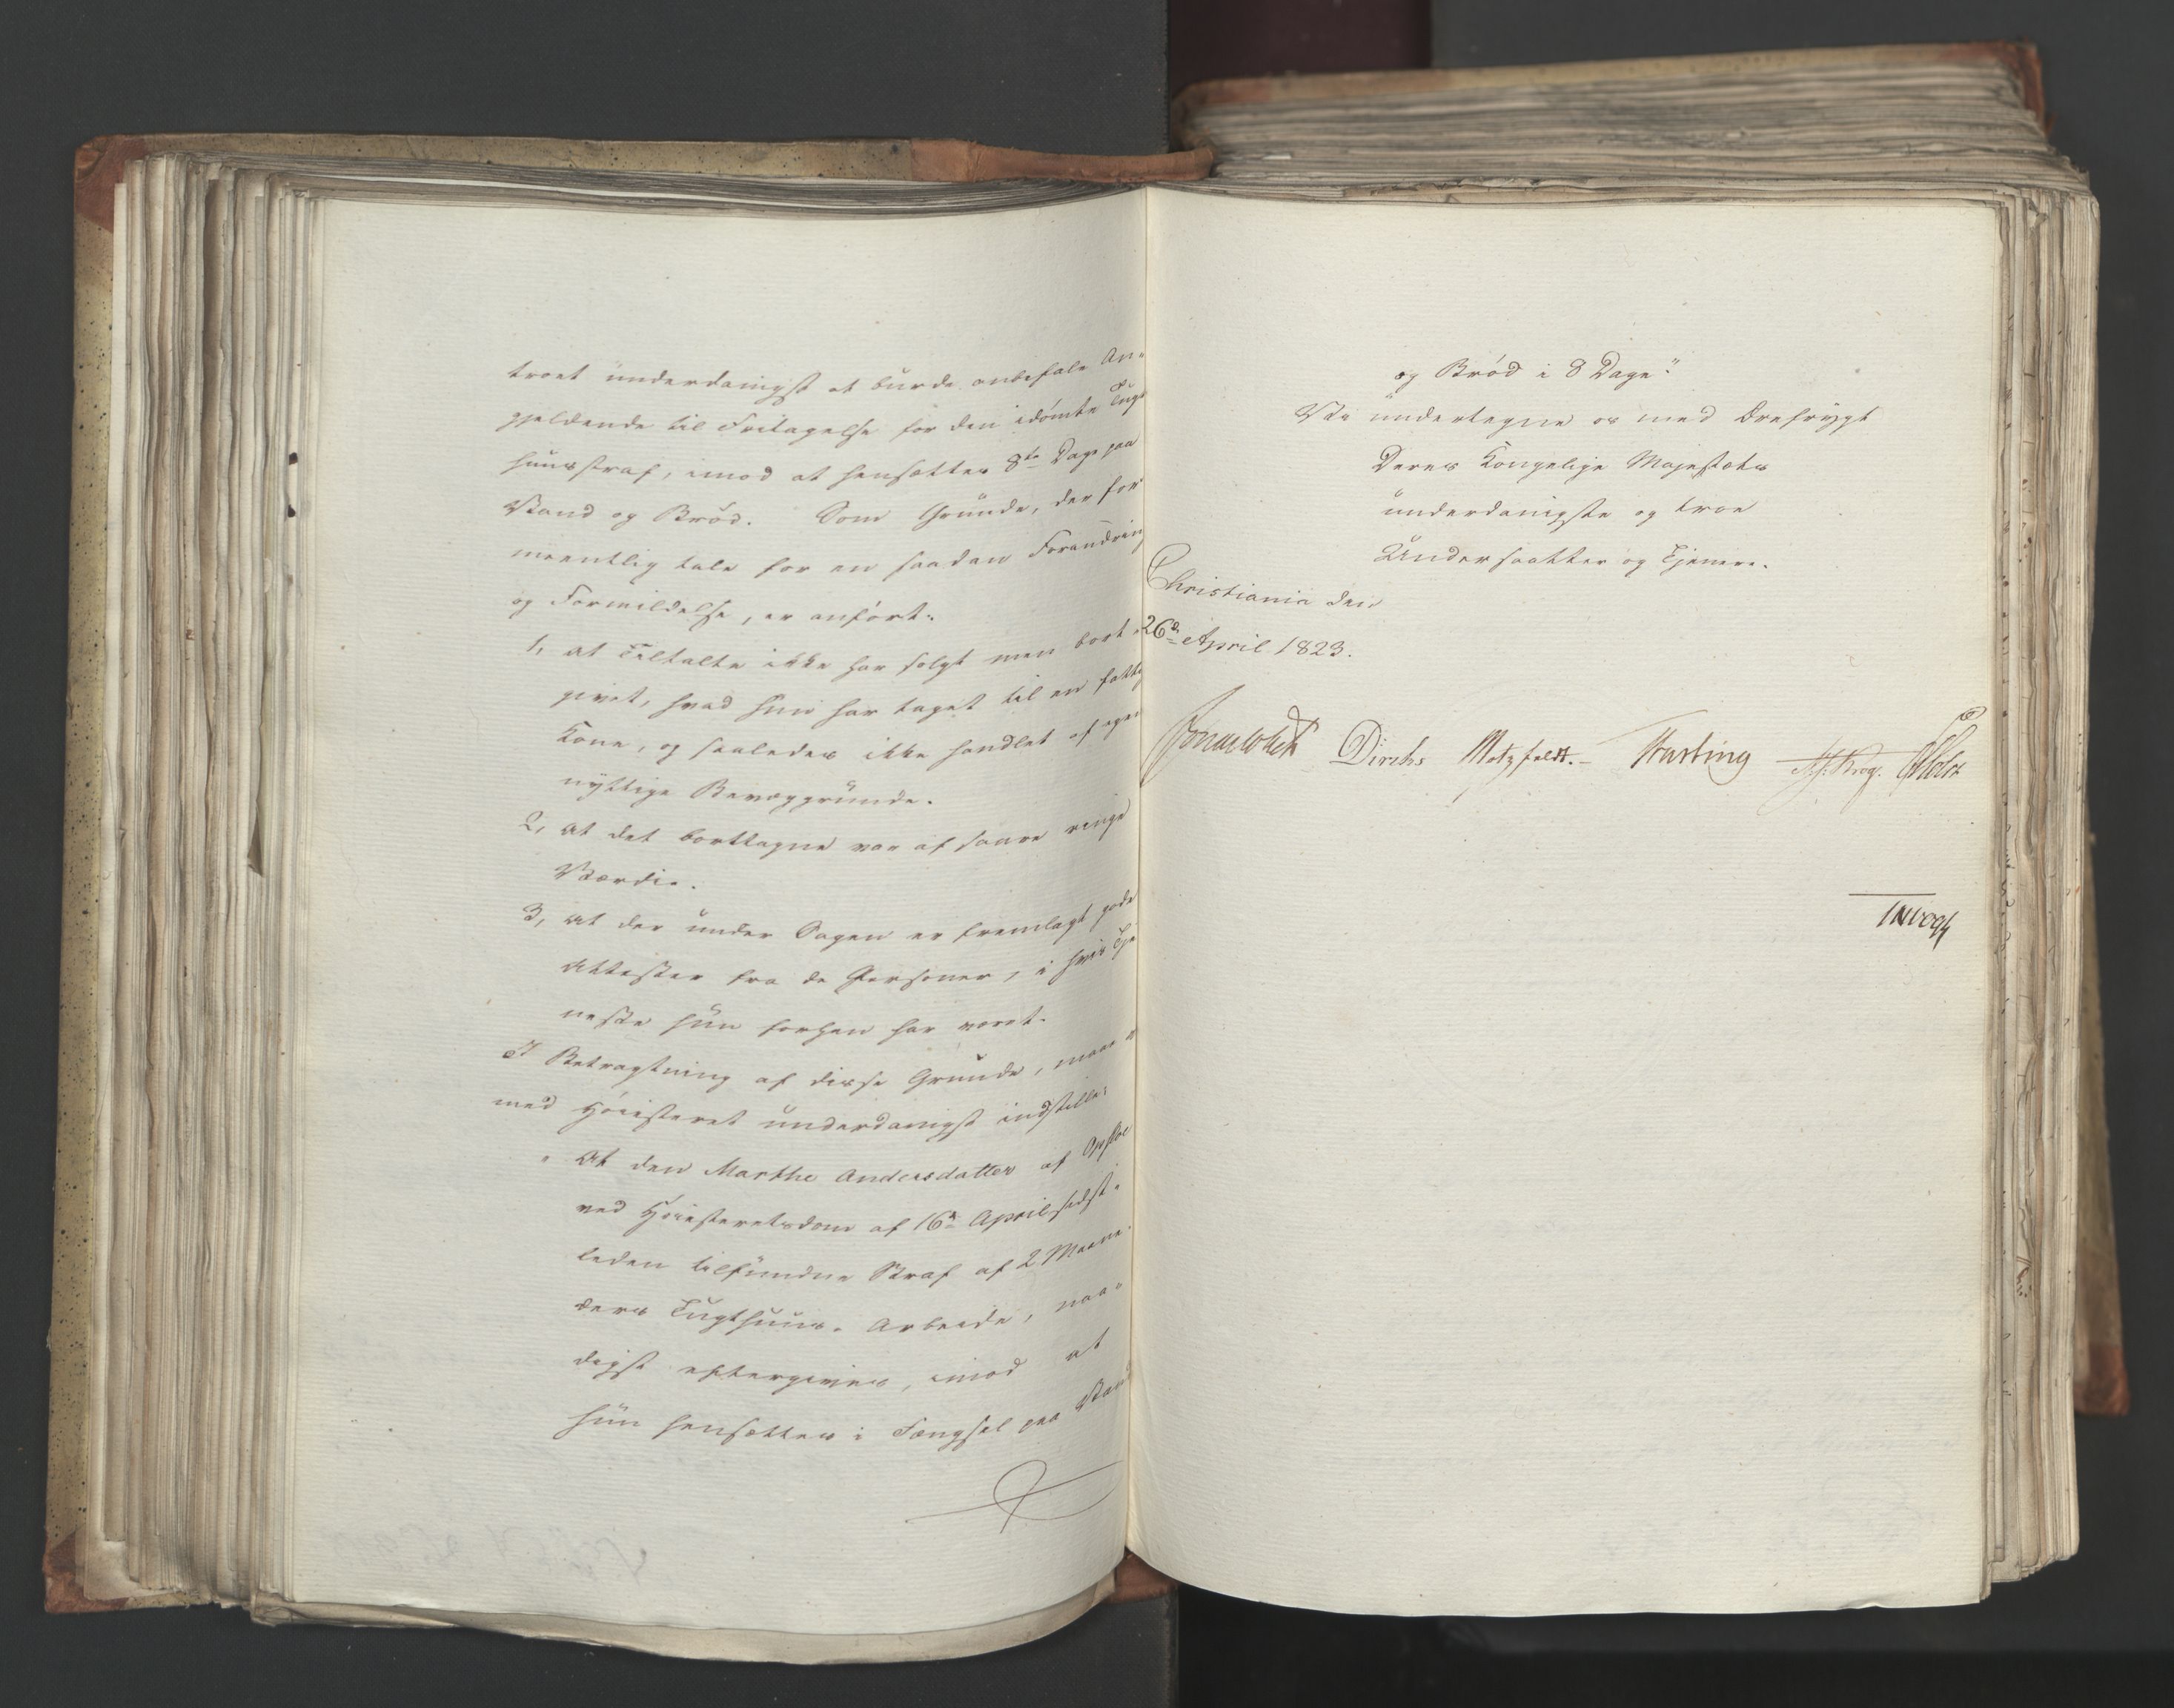 troet underdanigst at burde anbefale An-
gjeldende til Fritagelse for den idømte Tugt
huusstraf, imod at hensættes 8te Dage paa
Vand og Brød. Som Grunde, der for
meentlig tale for en saadan Forandring
og Formildelse, er anført:
1, at Tiltalte ikke har solgt men bort-
givet, hvad hun har taget til en fattig
Kone, og saaledes ikke handlet af egen
nyttige Bevæggrunde.
2, at det borttagne var af saare ringe
Værdie.
3, at der under Sagen er fremlagt gode
Attester fra de Personer, i hvis Tje
neste hun forhen har været.
I Betragtning af disse Grunde, maae
med Høiesteret underdanigst indstilles
" At den Marthe Andersdatter af Opsloe
ved Høiesteretsdom af 16de April sidst-
leden tilfundne Straf af 2 Maane
ders Tugthuus-Arbeide, naa-
digst eftergives, imod at
hun hensættes i Fængsel paa Vand
og Brød i 8 Dage"
Vi undertegne os med Ærefrygt
Deres Kongelige Majestæts
underdanigste og troe
Undersaatter og Tjenere.
Christiania den
26de April 1823.
Sommerhielm Diriks Motzfeldt.- Fasting M: Krog. Holst
JHVogt